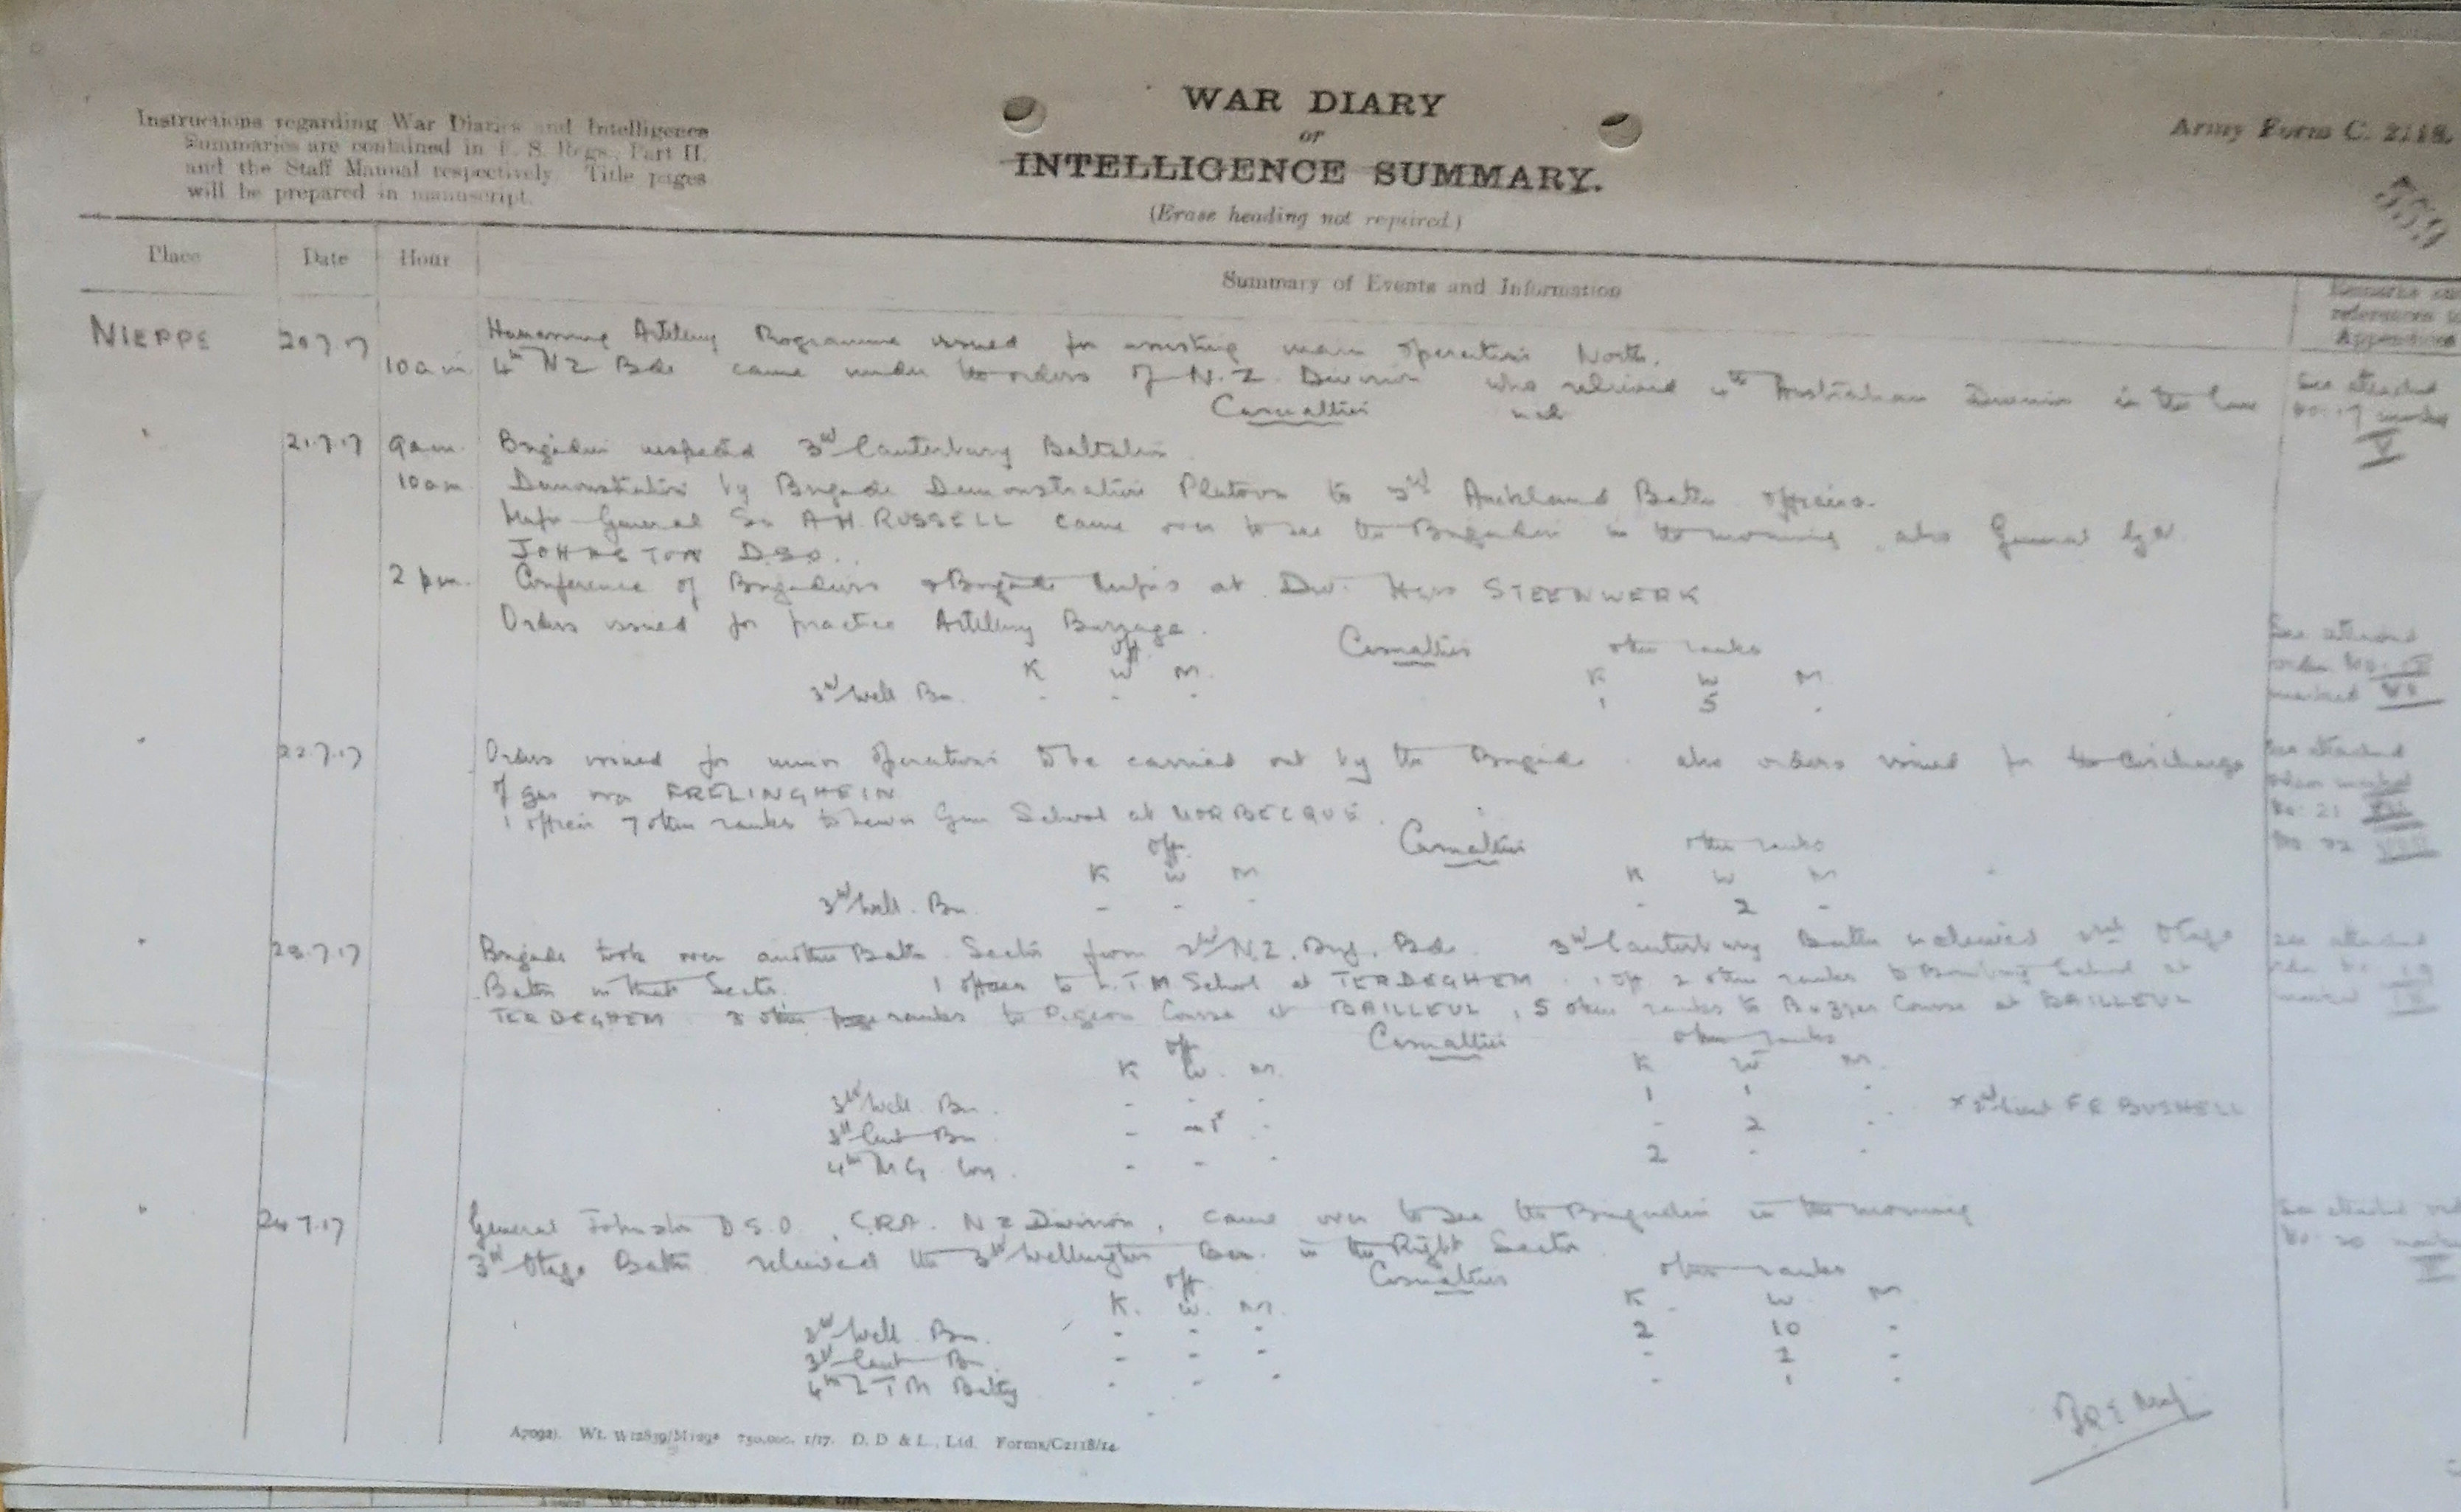 WAR DIARY
or
INTELLIGENCE SUMMARY.
(Erase heading not required.)
Instructions regarding War Diaries and Intelligence
Summaries are contained in F. S. Regs., Part II.
and the Staff Manual respectively. Title pages
will be prepared in manuscript.
Army Form C. 2118.
Place Date Hour Summary of Events and Information Remarks and
references to
Appendices
NIEPPE 20.7.17 Harassing Artillery Programme issued for assisting main operations North.
10 a.m. 4th NZ Bde came under the orders of N.Z. Division who relieved 4th Australian Division in the line
See attached
No. 17 marked
V
Casualties nil
" 21.7.17 9 a.m. Brigadier inspected 3rd Canterbury Battalion
10 a.m. Demonstration by Brigade Demonstration Platoon to 3rd Auckland Battn officers.
Major General Sir A.H. RUSSELL came over to see the Brigadier in the morning, also General
JOHNSTON D.S.O.
2 p.m. Conference of Brigadiers & Brigade Majors at Div. Hqrs STEENWERK
Orders issued for practice Artillery Barrage.
See attached
order No.
marked VI
Casualties
Off. other ranks
K W M. K W M
3rd Well Bn. - - - 1 5 -
" 22.7.17 Orders issued for minor operations to be carried out by the Brigade. also orders issued for the discharge
of gas over FRELINGHEIN
1 officer 7 other ranks to Lewis Gun School at MORBECQUE.
See attached
orders marked
No. 21 VII
No. 22 VIII
Casualties
Off. other ranks
K W M K W M
3rd Well. Bn - - - - 2 -
" 23.7.17 Brigade took over another Battn. Sector from 2nd N.Z. Brig. Bde. 3rd Canterbury Battn relieved 2nd Otago
Battn in that Sector. 1 officer to L.T.M School at TERDEGHEM. 1 off 2 other ranks to Bombing School at
TERDEGHEM 3 other ranks to Pigeon Course at BAILLEUL, 5 other ranks to Buzzer Course at BAILLEUL
See attached
order No. 19
marked IX
Casualties
off other ranks
K W. M. K W M.
3rd Well. Bn. - - - 1 1 -
3rd Cant Bn - 1* - - 2 -
4th M.G. Coy. - - - 2 - -
* 2nd Lieut F E BUSHELL
" 24.7.17 General Johnston D.S.O, C.R.A. NZ Division, came over to see the Brigadier in the morning
3rd Otago Battn relieved the 3rd Wellington Bn. in the Right Sector
See attached
No. 20
X
Casualties
off. other ranks
K. W. M. K W M
3rd Well. Bn. - - - 2 10 -
3rd Cant Bn. - - - - 2 -
4th L T M Batty - - - - 1 -
A7092). Wt. W12859/M1292 750,000. 1/17. D. D & L., Ltd. Forms/C2118/14